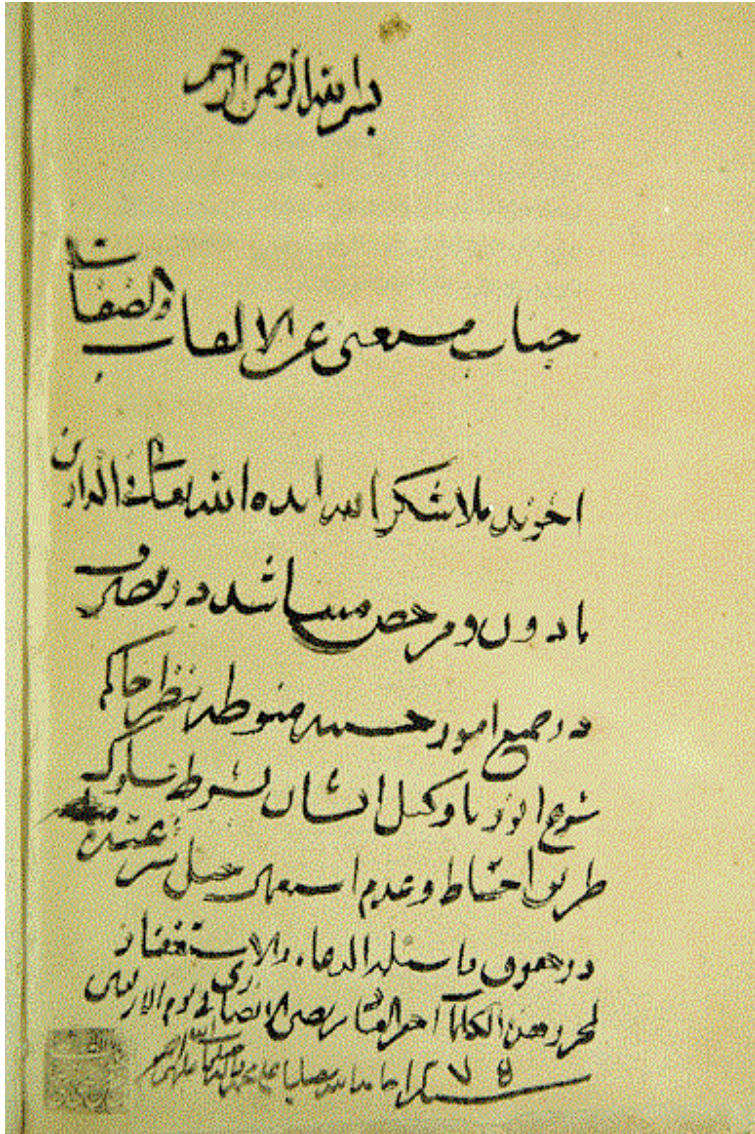 بسم الله الرحمن الرحيم
جناب مستغنی عن الالقاب والصفات
اخوند ملا شکرالله ایده الله تعالی فی الدارین
ماذون و مرخص میباشند در تصرف
در جمیع امور حسبیه منوطه بنظر حاکم
شرع انور یا وکیل ایشان بشرط سلوک
طریق احتیاط و عدم استعمال حیل شرعیه
در حقوق والاستغفار
لمحرر هذه الکلمات احقر العباد مرتضی الانصاری یوم الاربعین
حامدا لله مصلیا علی محمد